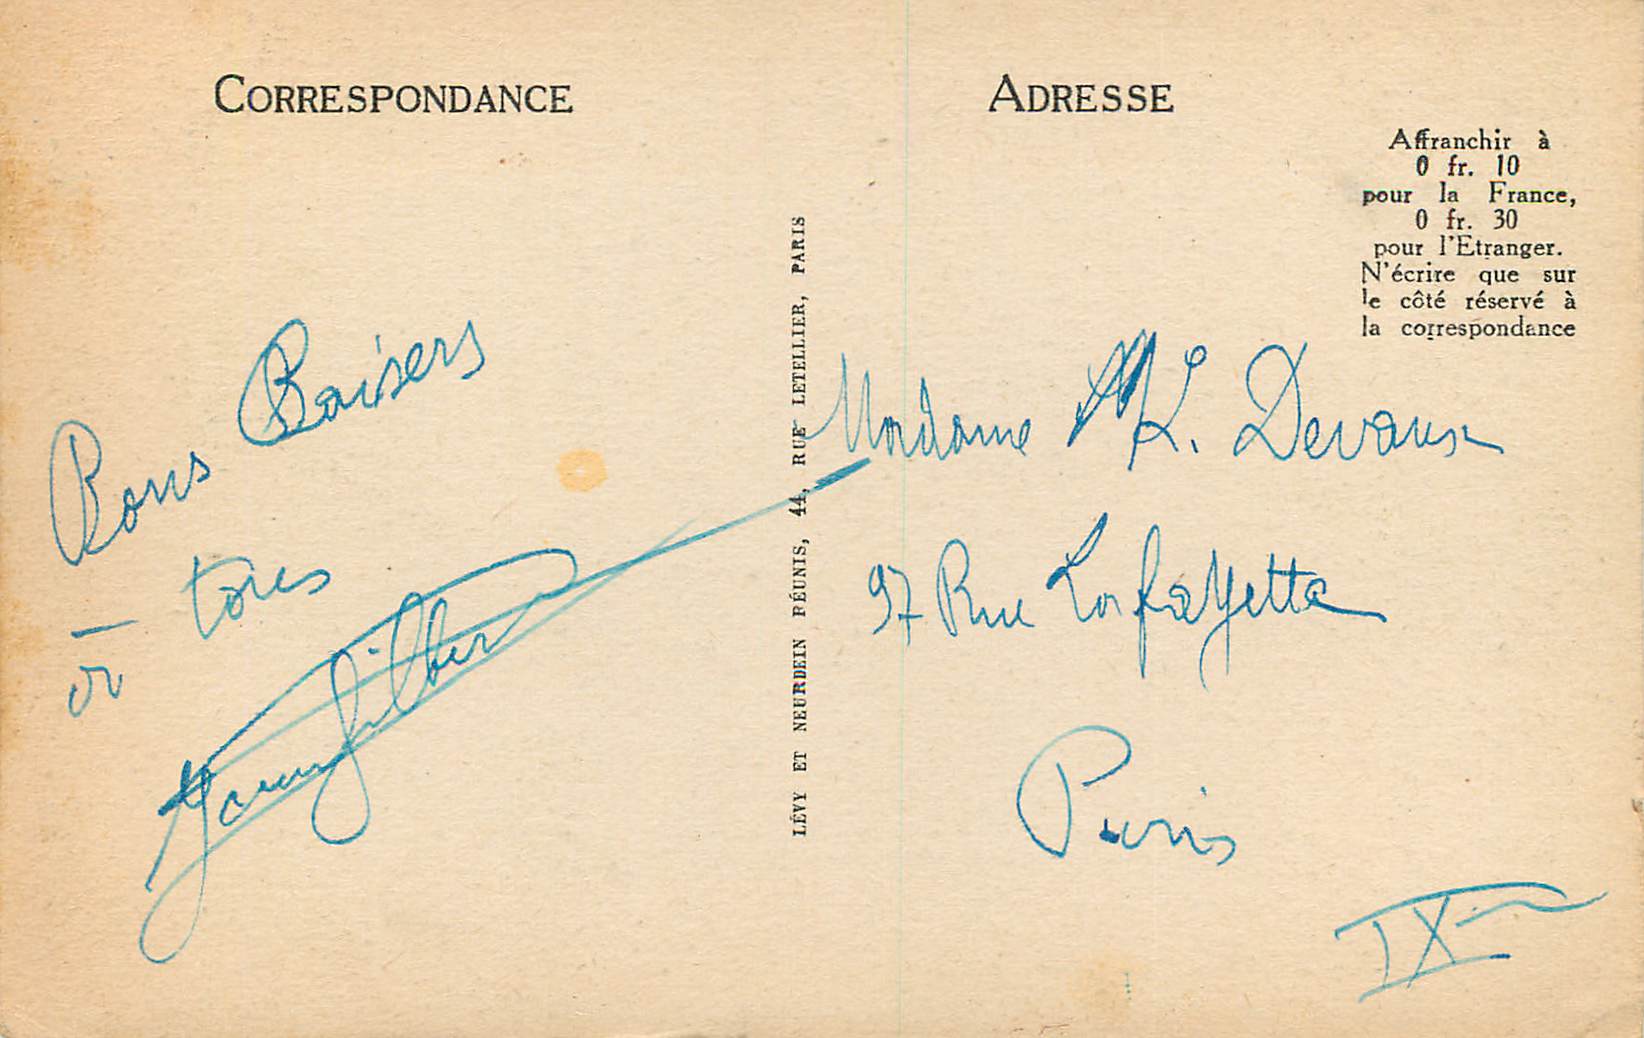 CORRESPONDANCE
Bons Baisers
à tous
ADRESSE
Affranchir à
0 fr. 10
pour la France,
0 fr. 30
pour l'Etranger.
N'écrire que sur
le côté réservé à
la correspondance
LÉVY ET NEURDEIN RÉUNIS, 44, RUE LETELLIER, PARIS
Madame ML. Devaux
97 Rue Lafayette
Paris
IX